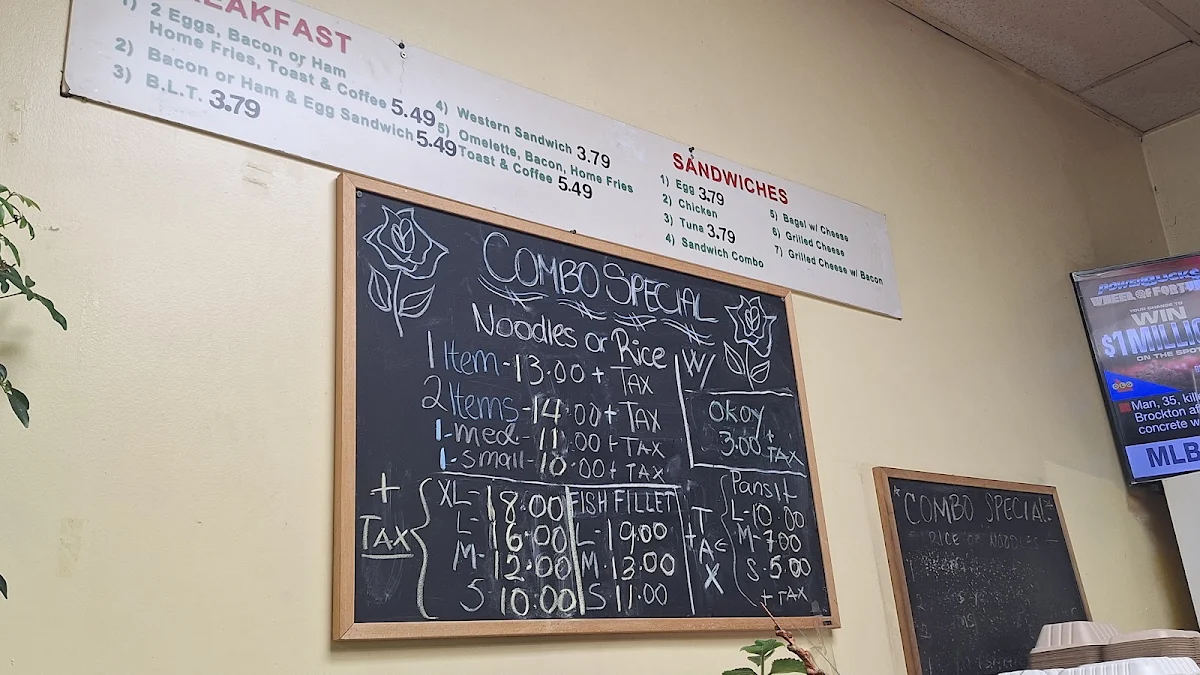 BREAKFAST
1) 2 Eggs, Bacon or Ham
Home Fries, Toast & Coffee 5.49
2) Bacon or Ham & Egg Sandwich 5.49
3) B.L.T. 3.79
4) Western Sandwich 3.79
5) Omelette, Bacon, Home Fries
Toast & Coffee 5.49
SANDWICHES
1) Egg 3.79
2) Chicken
3) Tuna 3.79
4) Sandwich Combo
5) Bagel w/ Cheese
6) Grilled Cheese
7) Grilled Cheese w/ Bacon
COMBO SPECIAL
Noodles or Rice W/
1 Item - 13.00 + TAX
2 Items - 14.00 + TAX
1-med - 11.00 + TAX
1-small - 10.00 + TAX
okoy
3.00 + TAX
+ TAX
XL- 18.00
L- 16.00
M- 12.00
S 10.00
FISH FILLET
L- 19.00
M. 13.00
S 11.00
+ TAX
Pansit
L- 10.00
M- 7.00
S- 5.00
+ TAX
COMBO SPECIAL
RICE or NOODLES
POWERBUCKS
WHEEL OF FORTUNE
YOUR CHANCE TO
WIN
$1 MILLI
ON THE SPOT
Man, 35, kill
Brockton a
concrete w
MLB